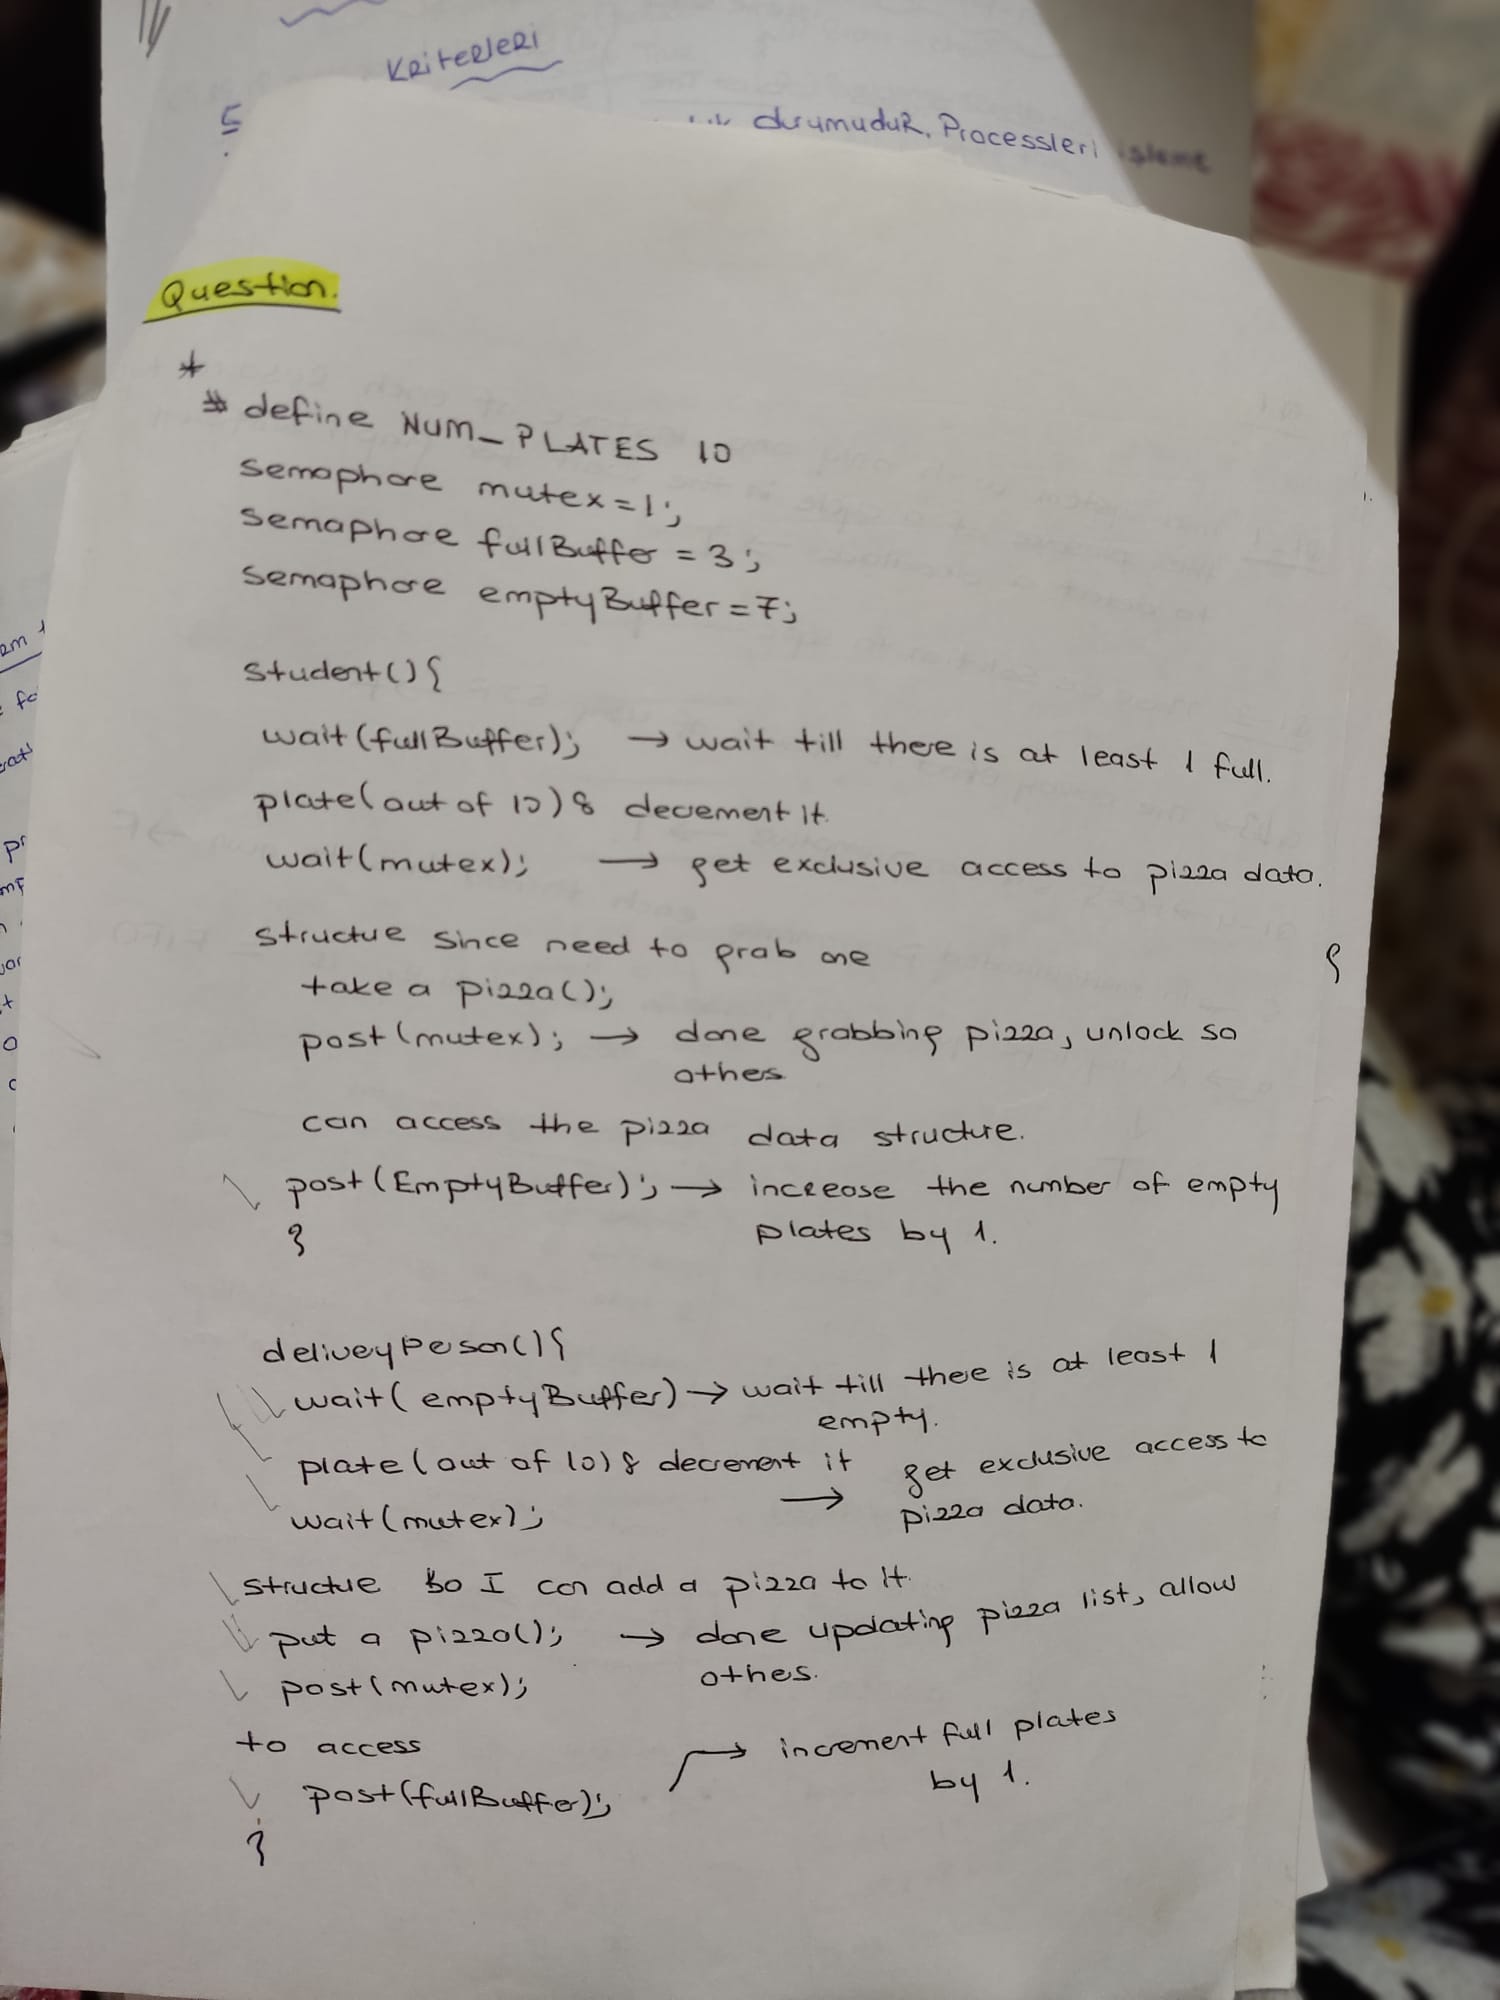 KRiteRleRi
5
durumuduR. Processleri işleme
Question.
*
# define NUM_PLATES 10
semaphore mutex=1;
semaphore fullBuffer = 3;
semaphore emptyBuffer=7;
student(){
wait(fullBuffer); → wait till there is at least 1 full.
plate(out of 10) & decement it.
wait(mutex); → get exclusive access to pizza data.
structue since need to grab one
take a pizza();
post(mutex); → done grabbing pizza, unlock so
othes
can access the pizza data structure.
post(EmptyBuffer); → increase the number of empty
plates by 1.
}
deliveyPeson(){
wait(emptyBuffer) → wait till there is at least 1
empty.
plate(out of 10) & decrement it
wait(mutex); → get exclusive access to
pizza data.
structue so I can add a pizza to it.
put a pizza(); → done updating pizza list, allow
othes.
post(mutex);
to access
post(fullBuffer); → increment full plates
by 1.
}